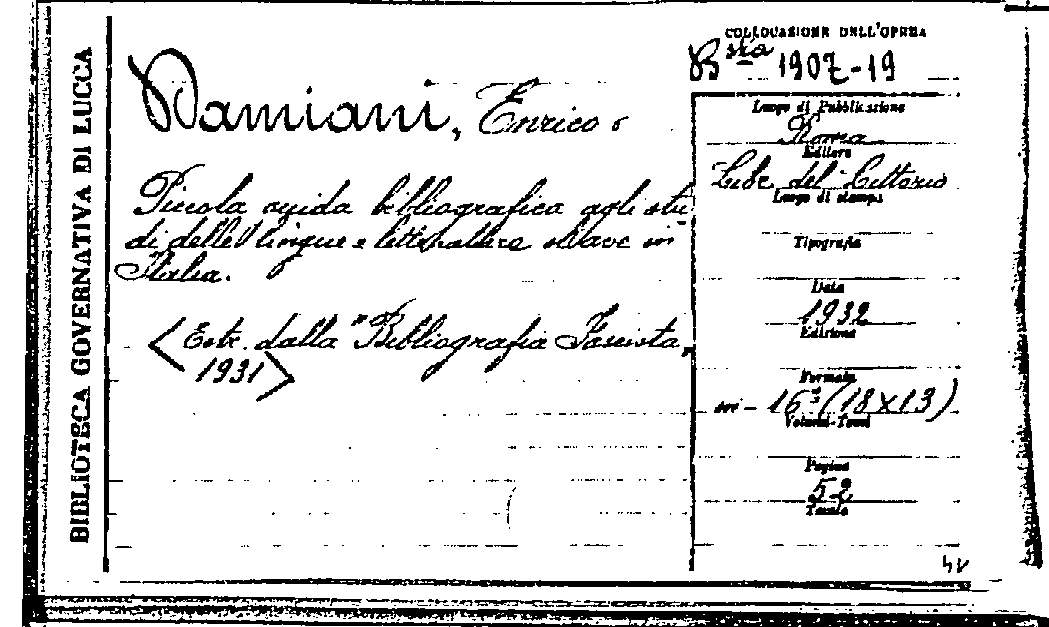 BIBLIOTECA GOVERNATIVA DI LUCCA
Damiani, Enrico.
Piccola guida bibliografica agli stu
di delle lingue e letterature slave in
Italia.
<Estr. dalla "Bibliografia Fascista"
1931>
COLLOCAZIONE DELL'OPERA
Bsta 1907-19
Luogo di Pubblicazione
Roma
Editore
Libr. del Littorio
Luogo di stampa
Tipografia
Data
1932
Edizione
Formato
in-16° (18x13)
Volumi-Tomi
Pagine
52
Tavole